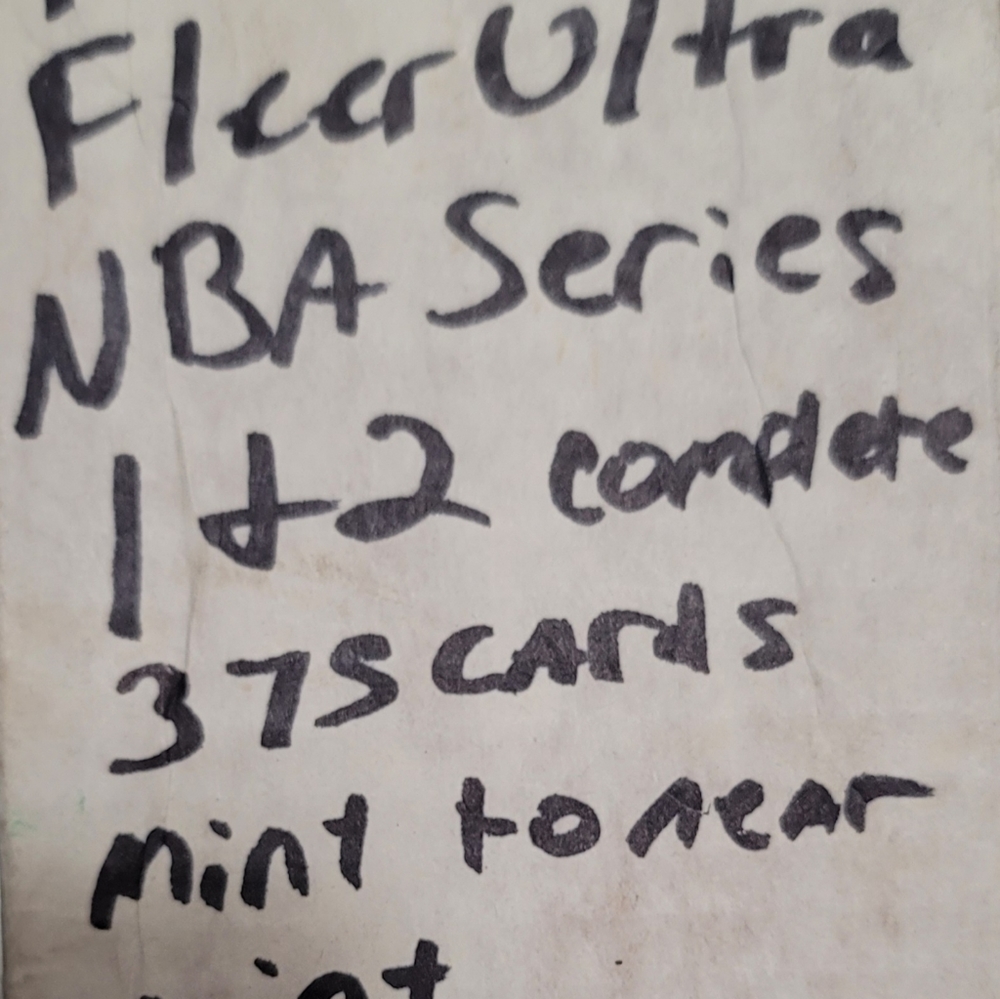 Fleer Ultra
NBA Series
1 + 2 complete
375 cards
mint to near
mint